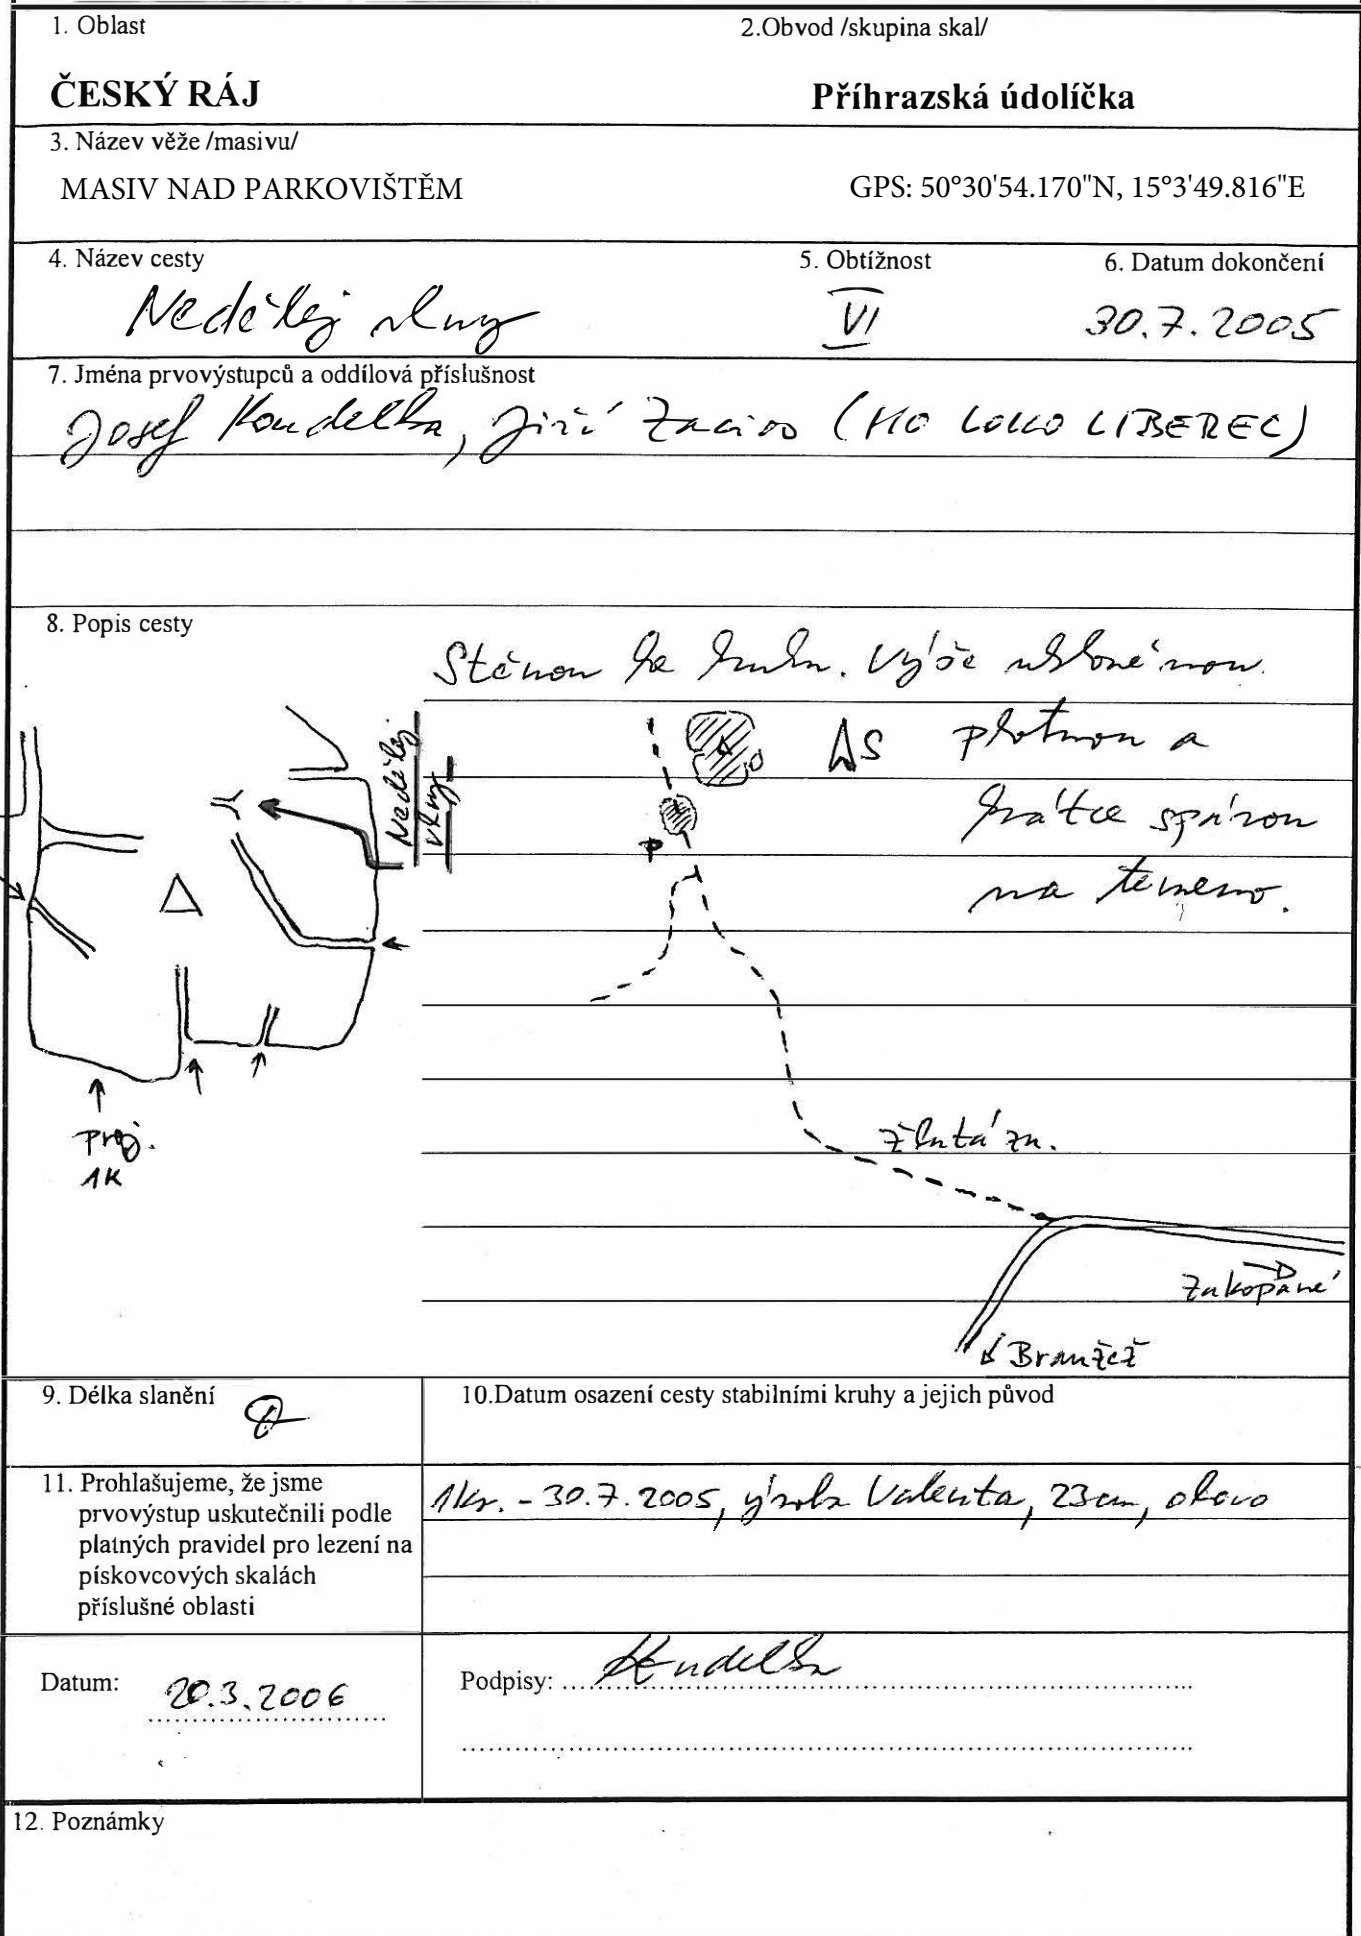 1. Oblast 2.Obvod /skupina skal/
ČESKÝ RÁJ Příhrazská údolíčka
3. Název věže /masivu/
MASIV NAD PARKOVIŠTĚM GPS: 50°30'54.170"N, 15°3'49.816"E
4. Název cesty 5. Obtížnost 6. Datum dokončení
Nedělej vlny VI 30.7.2005
7. Jména prvovýstupců a oddílová příslušnost
Josef Koudelka, Jiří (HO LOKO LIBEREC)
8. Popis cesty
Stěnou ke kruhu. Výše ukloněnou
plotnou a
krátce spárou
na temeno.
Nedělej
vlny
S
P
Proj.
1K
žlutá zn.
Zakopané
Branžež
9. Délka slanění
10.Datum osazení cesty stabilními kruhy a jejich původ
1kr. - 30.7.2005, výroba Valenta, 23cm, olovo
11. Prohlašujeme, že jsme
prvovýstup uskutečnili podle
platných pravidel pro lezení na
pískovcových skalách
příslušné oblasti
Datum: 20.3.2006 Podpisy: Koudelka
12. Poznámky